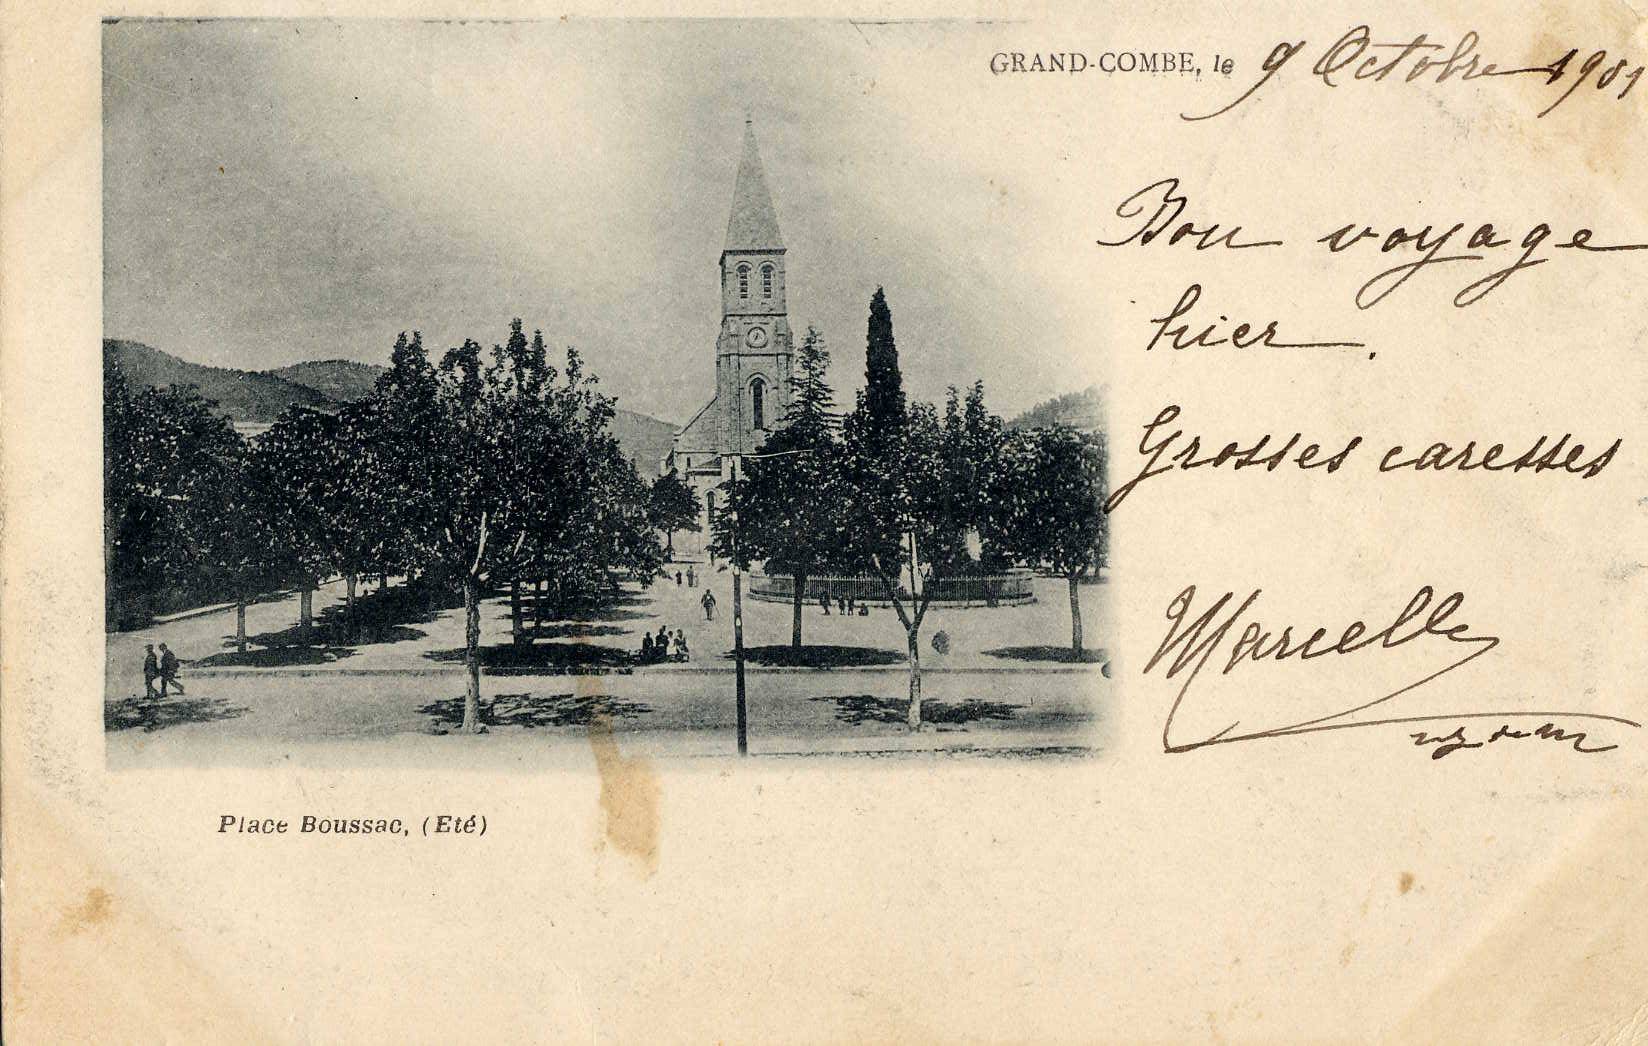 GRAND-COMBE, le 9 Octobre 1901
Bon voyage
hier.
Grosses caresses
Marcelle
Place Boussac, (Eté)